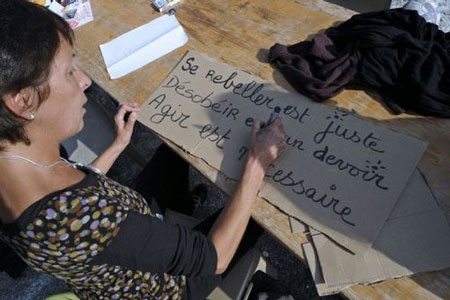 Se rebeller est juste
Désobéir est un devoir
Agir est nécessaire